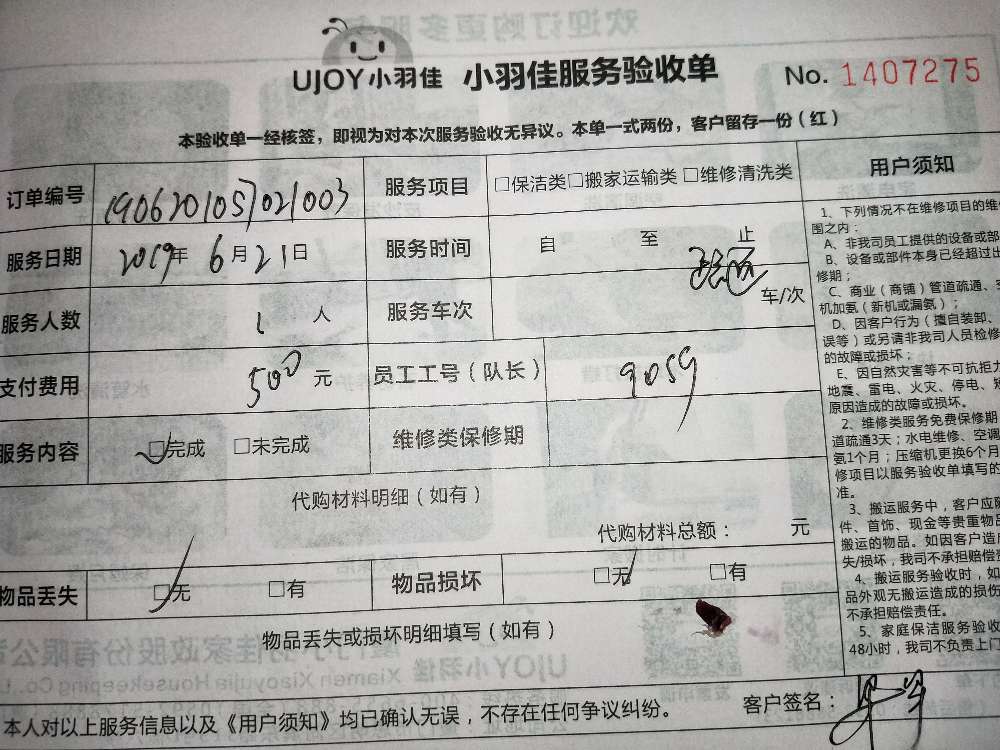 UJOY小羽佳 小羽佳服务验收单 No. 1407275
本验收单一经核签，即视为对本次服务验收无异议。本单一式两份，客户留存一份（红）
订单编号 1906201057021003 服务项目 □保洁类□搬家运输类 □维修清洗类
服务日期 2019年 6月21日 服务时间 自 至 止
服务人数 1 人 服务车次 车/次
支付费用 500 元 员工工号（队长） 9059
服务内容 □完成 □未完成 维修类保修期
代购材料明细（如有）
代购材料总额： 元
物品丢失 □无 □有 物品损坏 □无 □有
物品丢失或损坏明细填写（如有）
本人对以上服务信息以及《用户须知》均已确认无误，不存在任何争议纠纷。 客户签名：
用户须知
1、下列情况不在维修项目的维
围之内：
A、非我司员工提供的设备或部
B、设备或部件本身已经超过出
修期；
C、商业（商铺）管道疏通、空
机加氨（新机或漏氨）；
D、因客户行为（擅自装卸、
误等）或另请非我司人员检修
的故障或损坏；
E、因自然灾害等不可抗拒力
地震、雷电、火灾、停电、短
原因造成的故障或损坏。
2、维修类服务免费保修期
道疏通3天；水电维修、空调
氨1个月；压缩机更换6个月
修项目以服务验收单填写的
准。
3、搬运服务中，客户应
件、首饰、现金等贵重物品
搬运的物品。如因客户造成
失/损坏，我司不承担赔偿责
4、搬运服务验收时，如
品外观无搬运造成的损伤
不承担赔偿责任。
5、家庭保洁服务验收
48小时，我司不负责上门